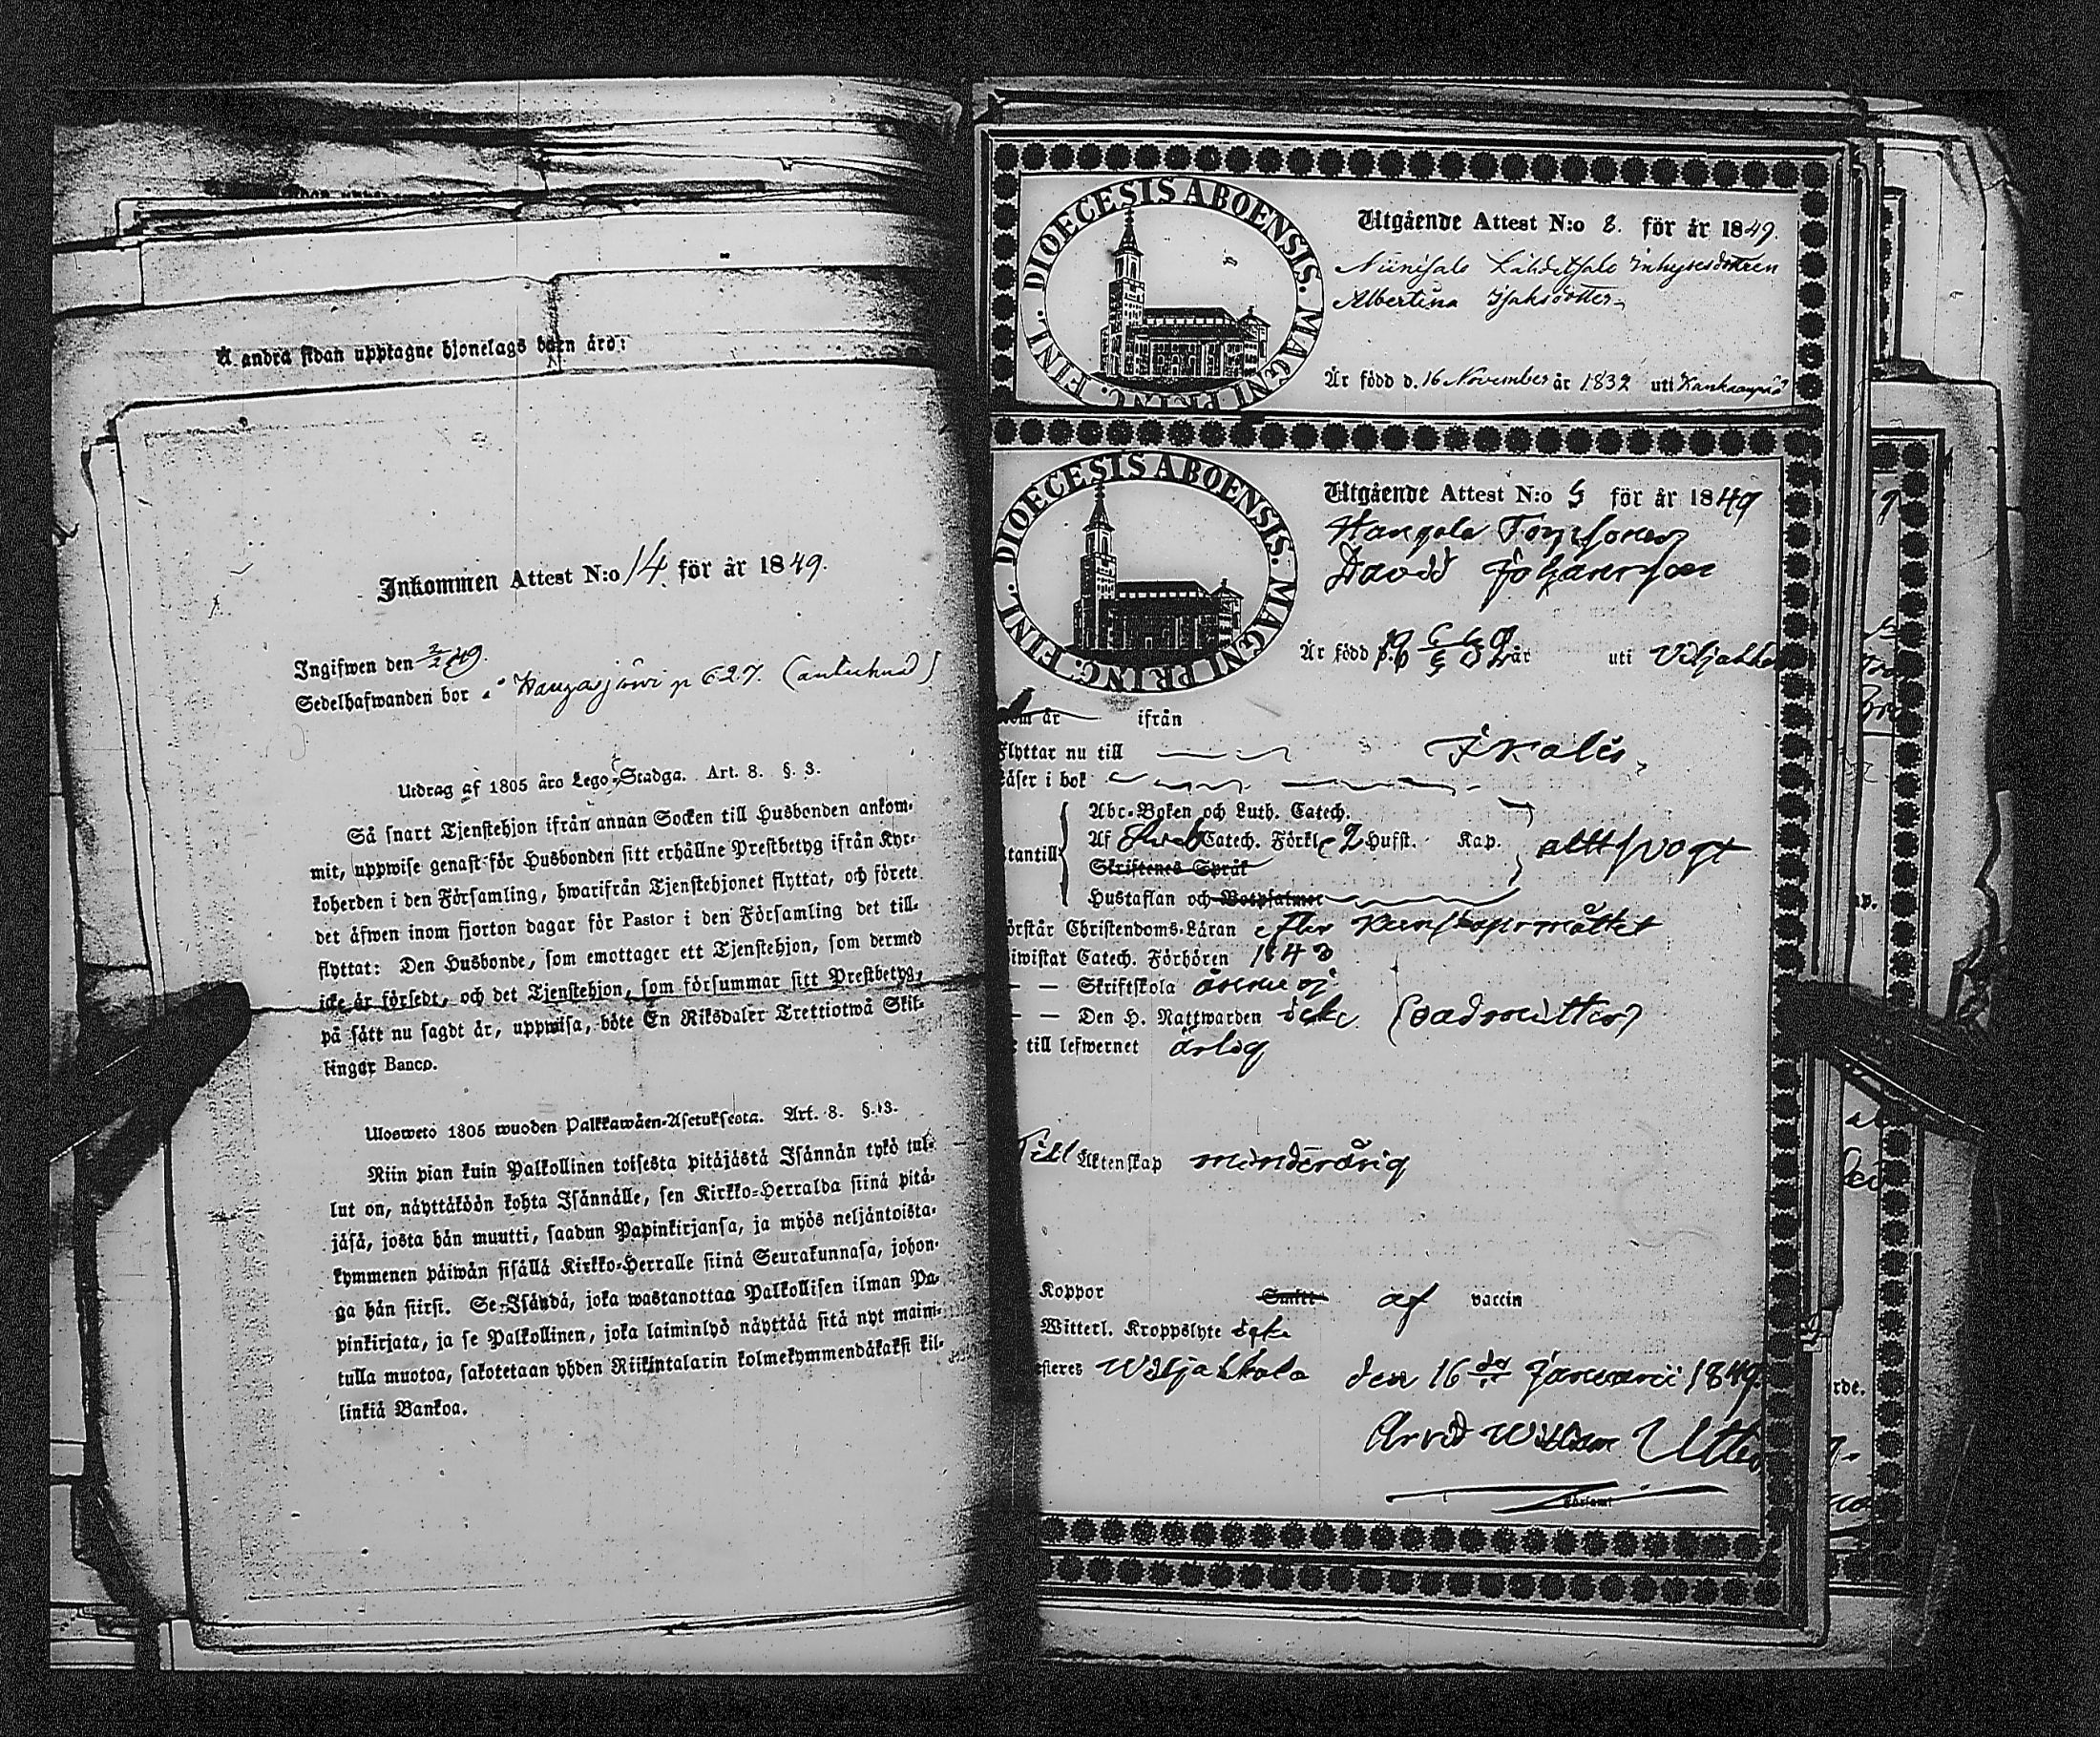 Å andra sidan upptagne hjonelags barn äro:
Inkommen Attest N:o 14. för år 1849.
Ingifwen den 2/2 49.
Sedelhafwanden bor i Kangasjärvi p 627. (antecknad)
Utdrag af 1805 års Lego-Stadga. Art. 8. §. 3.
Så snart Tjenstehjon ifrån annan Socken till Husbonden ankom-
mit, uppwise genast för Husbonden sitt erhållne Prestbetyg ifrån Kyr-
koherden i den Församling, hwarifrån Tjenstehjonet flyttat, och förete
det äfwen inom fjorton dagar för Pastor i den Församling det till-
flyttat: Den Husbonde, som emottager ett Tjenstehjon, som dermed
icke är försedt, och det Tjenstehjon, som försummar sitt Prestbetyg,
på sätt nu sagdt är, uppwisa, böte En Riksdaler Trettiotwå Skil-
lingar Banco.
Ulosweto 1805 wuoden Palkkawäen-Asetuksesta. Art. 8. §. 3.
Niin pian kuin Palkollinen toisesta pitäjästä Isännän tykö tul-
lut on, näyttäköön kohta Isännälle, sen Kirkko-Herralda siinä pitä-
jäsä, josta hän muutti, saadun Papinkirjansa, ja myös neljäntoista-
kymmenen päiwän sisällä Kirkko-Herralle siinä Seurakunnasa, johon-
ga hän siirsi. Se Isändä, joka wastanottaa Palkollisen ilman Pa-
pinkirjata, ja se Palkollinen, joka laiminlyö näyttää sitä nyt maini-
tulla muotoa, sakotetaan yhden Riikintalarin kolmekymmendäkaksi kil-
linkiä Bankoa.
DIOECESIS ABOENSIS. MAGNI PRINC. FINL.
Utgående Attest N:o 8. för år 1849.
Niinisalo Lähdetsalo Inhysesdottren
Albertina Isaksdotter
Är född d. 16 November år 1832 uti Kankaanpää
DIOECESIS ABOENSIS. MAGNI PRINC. FINL.
Utgående Attest N:o 5 för år 1849
David Johansson
Är född år uti Viljakka
om år ifrån
Flyttar nu till Ikalis
Läser i bok
Abc-Boken och Luth. Catech.
Af Catech. Förkl. 2 Hufst. Kap.
Skriftenes Språk
Hustaflan och Botpsalmer
utantill allt svagt
örstår Christendoms-Läran efter kunskapsmåttet
iwistat Catech. Förhören 1848
— — Skriftskola ännu ej
— — Den H. Nattwarden icke (oadmitterad)
till lefwernet ärlig
Till Äktenskap minderårig
Koppor Smitt af vaccin
Witterl. Kroppslyte icke
esteres Wiljakkala den 16de Januarii 1849.
Arvid William